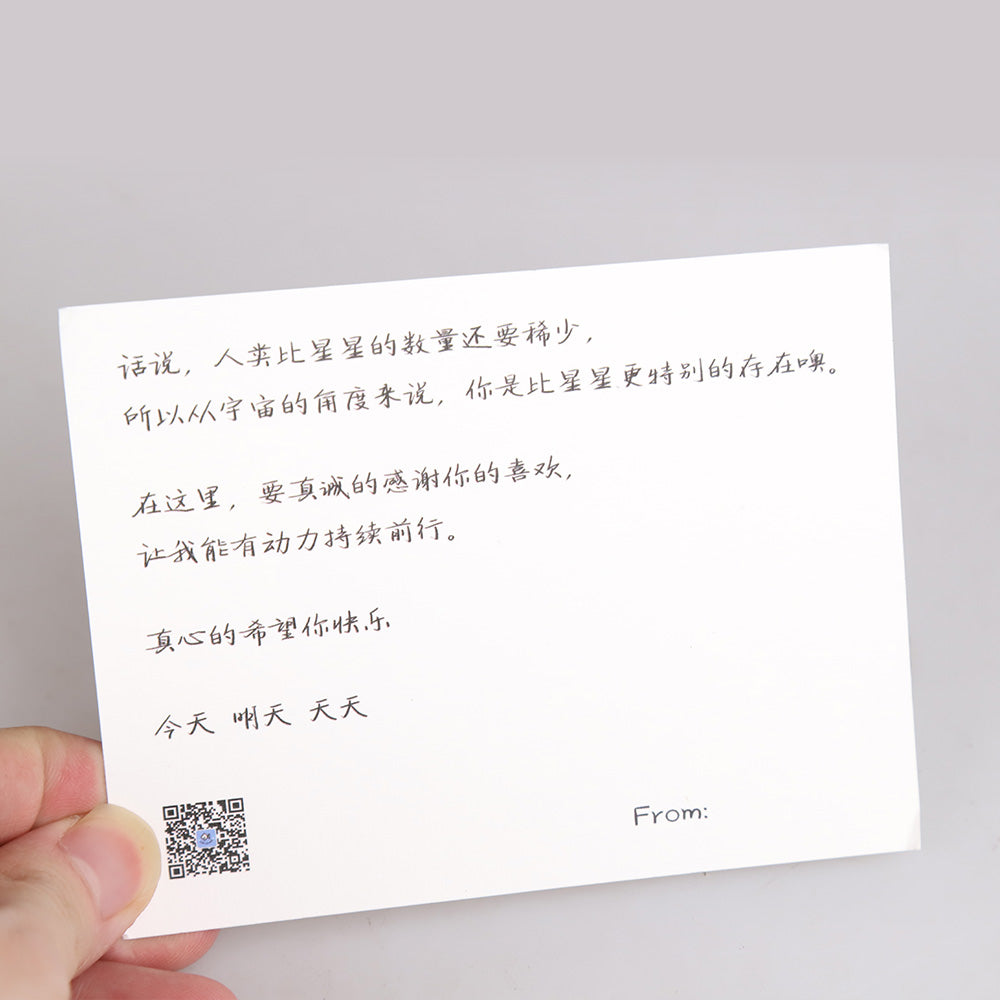 话说，人类比星星的数量还要稀少，
所以从宇宙的角度来说，你是比星星更特别的存在噢。
在这里，要真诚的感谢你的喜欢，
让我能有动力持续前行。
真心的希望你快乐
今天 明天 天天
From: